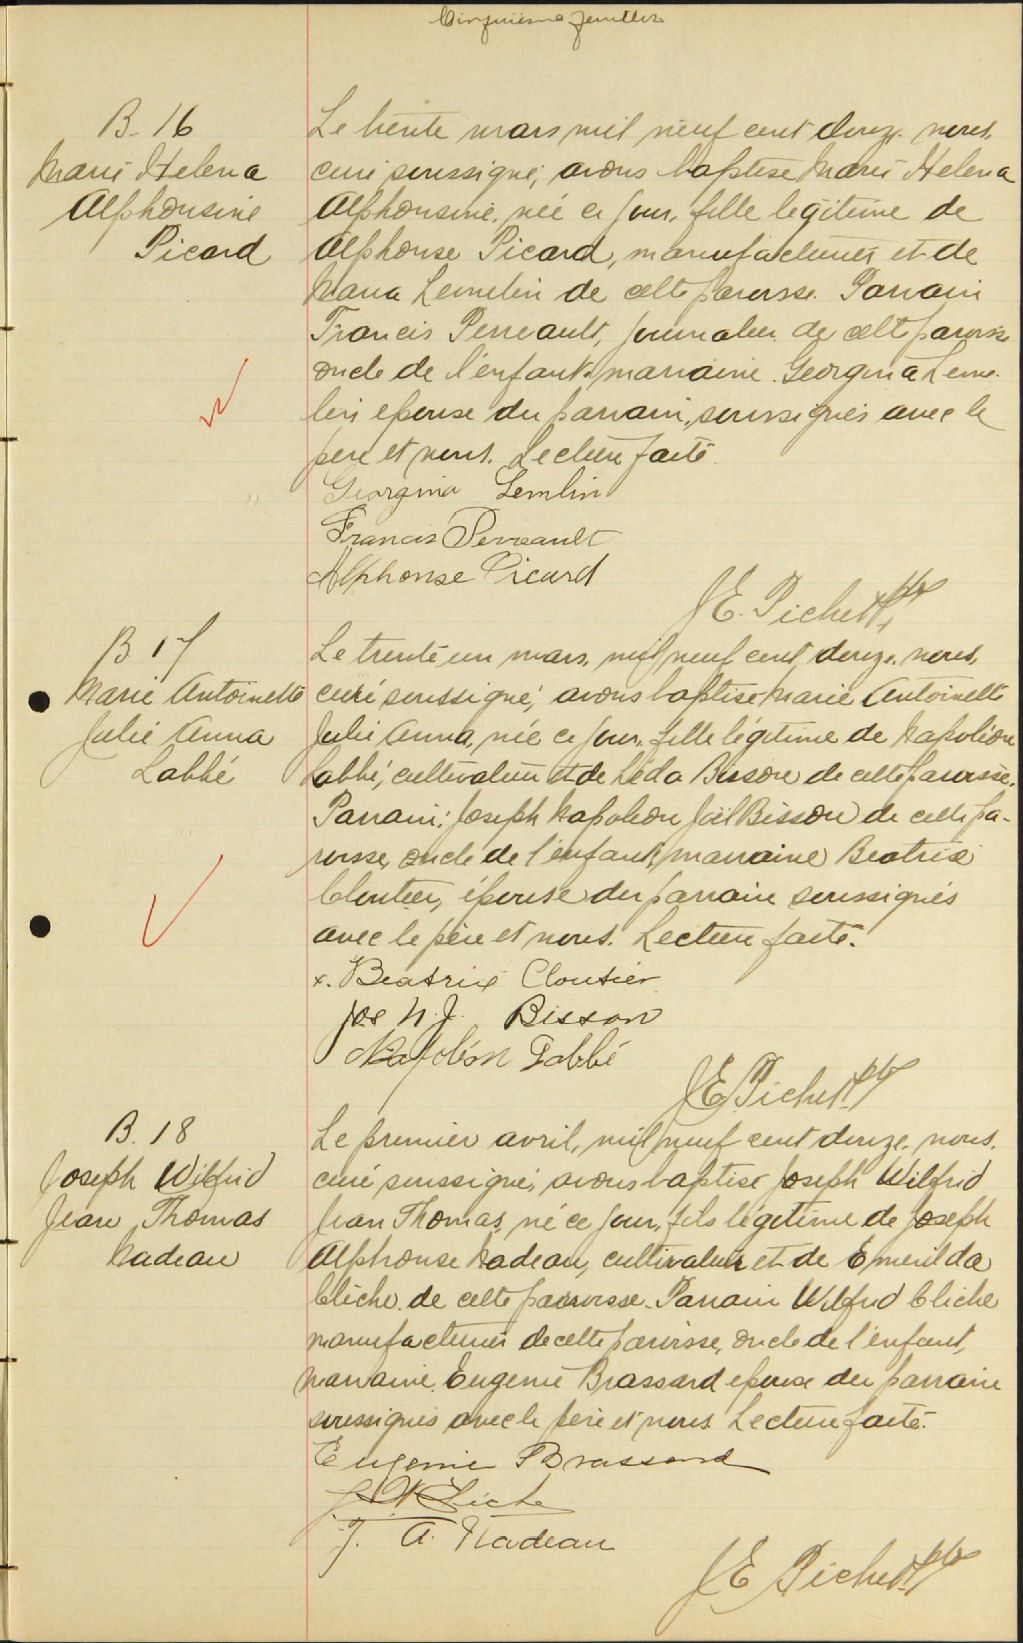 Cinquième feuillet
B. 16
Marie Helena
Alphonsine
Picard
Le trente mars mil neuf cent douze, nous,
curé soussigné, avons baptisé Marie Helena
Alphonsine, née ce jour, fille légitime de
Alphonse Picard, manufacturier et de
Maria Lemelin de cette paroisse. Parrain
Francis Perreault, journalier de cette paroisse
oncle de l'enfant, marraine Georgina Leme-
lin épouse du parrain, soussignés avec le
père et nous. Lecture faite
Georgina Lemlin
Francis Perreault
Alphonse Picard
J.E. Pichette ptre
B 17
Marie Antoinette
Julie Anna
Labbé
Le trente un mars, mil neuf cent douze, nous,
curé soussigné, avons baptisé Marie Antoinette
Julie Anna, née ce jour, fille légitime de Napoléon
Labbé, cultivateur et de Léda Bisson de cette paroisse.
Parrain: Joseph Napoléon Joël Bisson de cette pa-
roisse, oncle de l'enfant, marraine Beatrice
Cloutier, épouse du parrain soussignés
avec le père et nous. Lecture faite.
x. Beatrix Cloutier
Jos N. J. Bisson
Napoléon Labbé
J.E. Pichette ptre
B. 18
Joseph Wilfrid
Jean Thomas
Nadeau
Le premier avril, mil neuf cent douze, nous,
curé soussigné, avons baptisé Joseph Wilfrid
Jean Thomas, né ce jour, fils légitime de Joseph
Alphonse Nadeau, cultivateur et de Emerilda
Cliche de cette paroisse. Parrain Wilfrid Cliche
manufacturier de cette paroisse, oncle de l'enfant,
marraine Eugenie Brassard épouse du parrain
soussignés avec le père et nous. Lecture faite.
Eugenie Brassard
J W Cliche
J. A. Nadeau
J E Pichette ptre